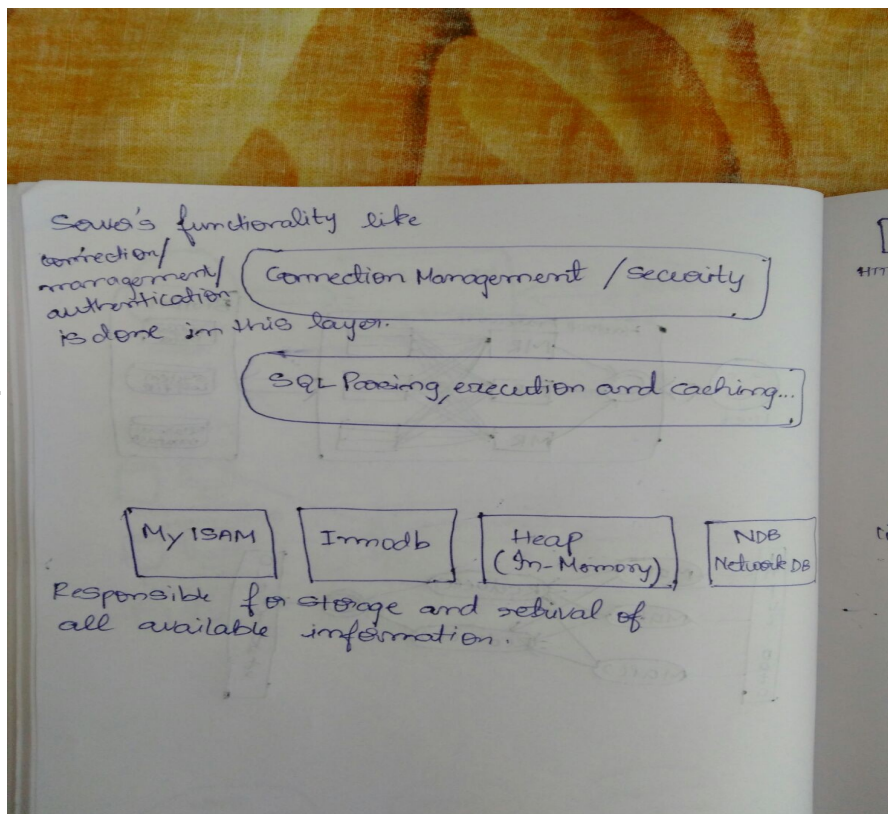 Server's functionality like
connection/
management/
authentication
is done in this layer.
Connection Management / Security
SQL Parsing, execution and caching...
My ISAM
Innodb
Heap
(In-Memory)
NDB
Network DB
Responsible for storage and retrival of
all available information.